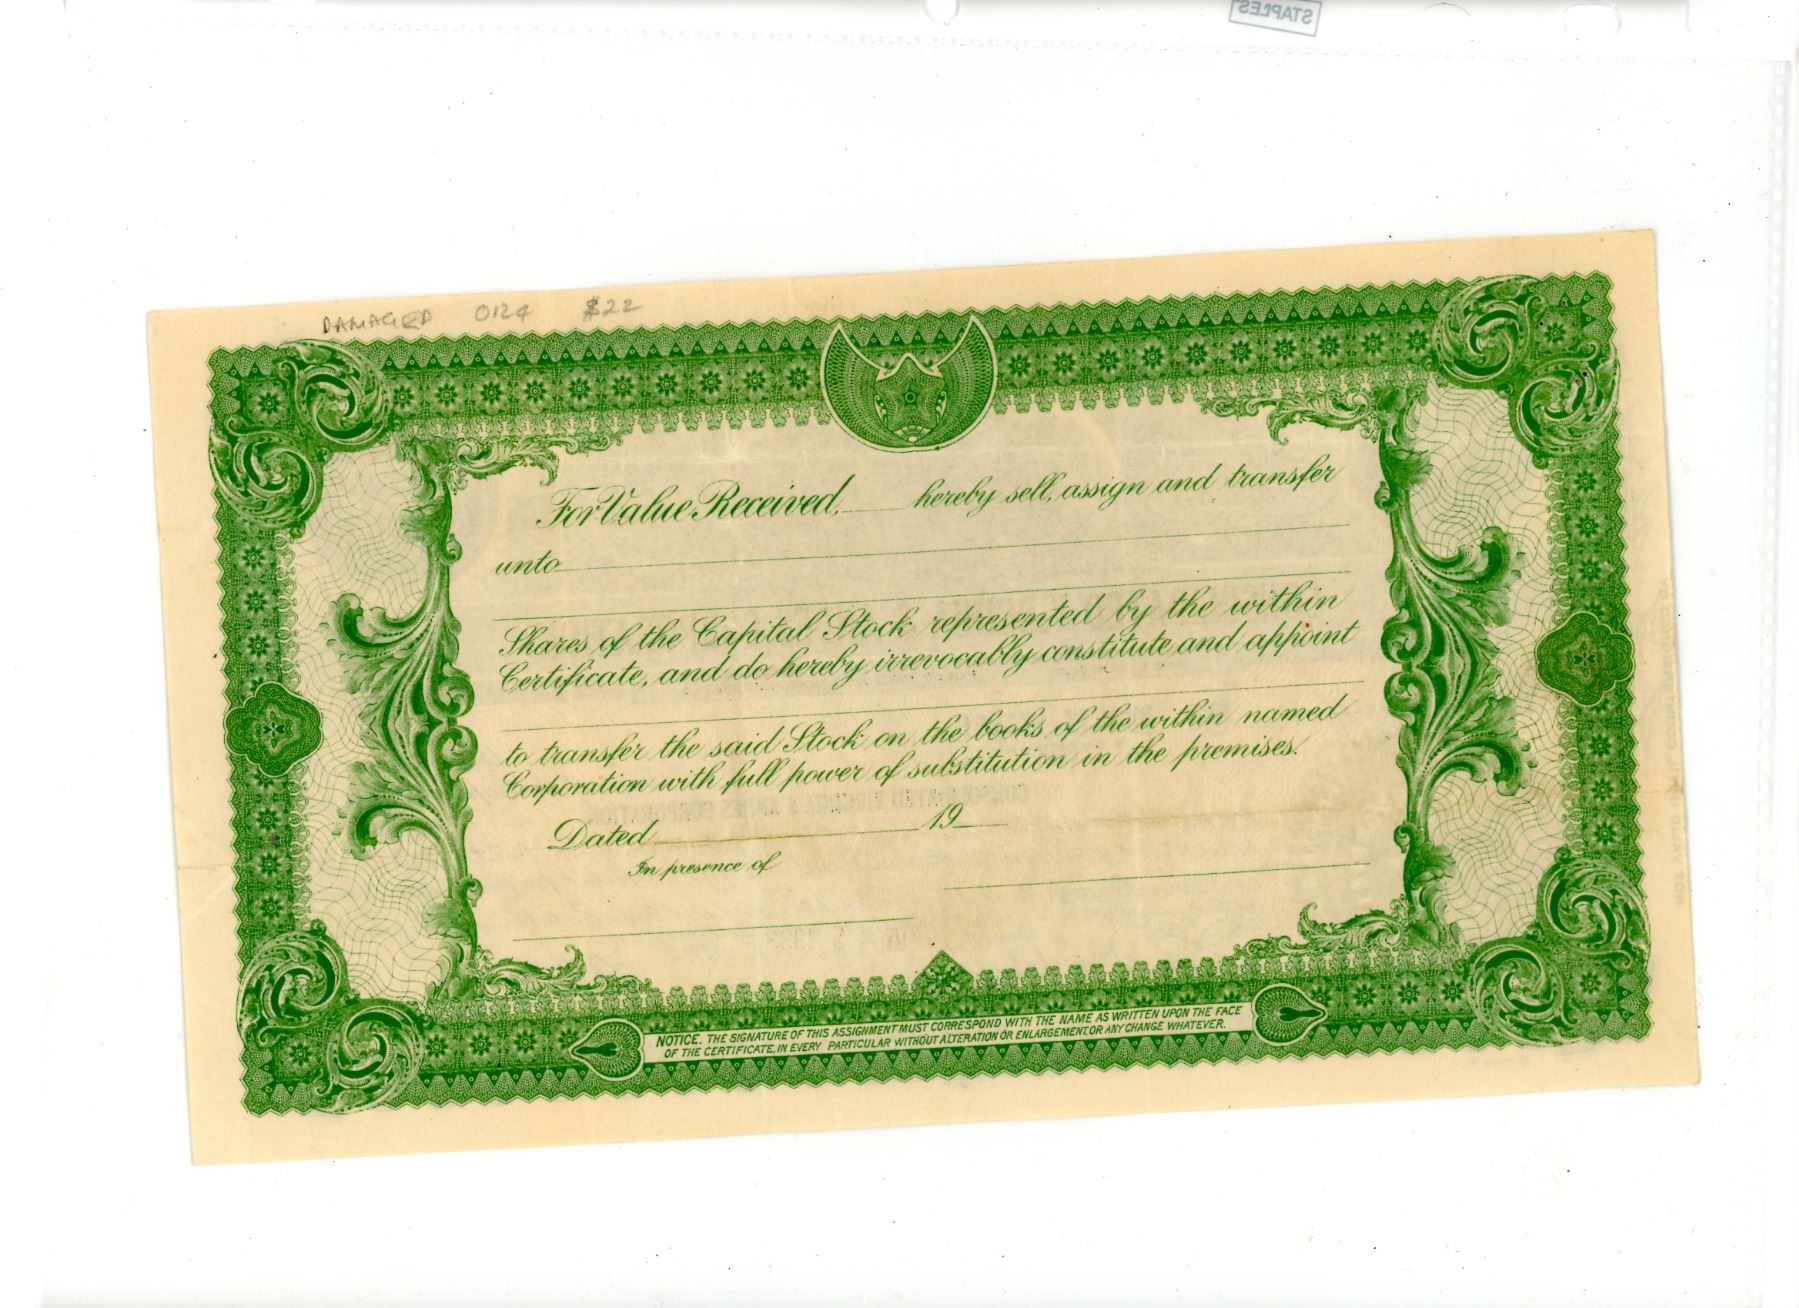 STAPLES
DAMAGED 0124 $22
For Value Received, hereby sell, assign and transfer
unto
Shares of the Capital Stock represented by the within
Certificate, and do hereby irrevocably constitute and appoint
to transfer the said Stock on the books of the within named
Corporation with full power of substitution in the premises.
Dated 19
In presence of
NOTICE. THE SIGNATURE OF THIS ASSIGNMENT MUST CORRESPOND WITH THE NAME AS WRITTEN UPON THE FACE
OF THE CERTIFICATE, IN EVERY PARTICULAR WITHOUT ALTERATION OR ENLARGEMENT, OR ANY CHANGE WHATEVER.